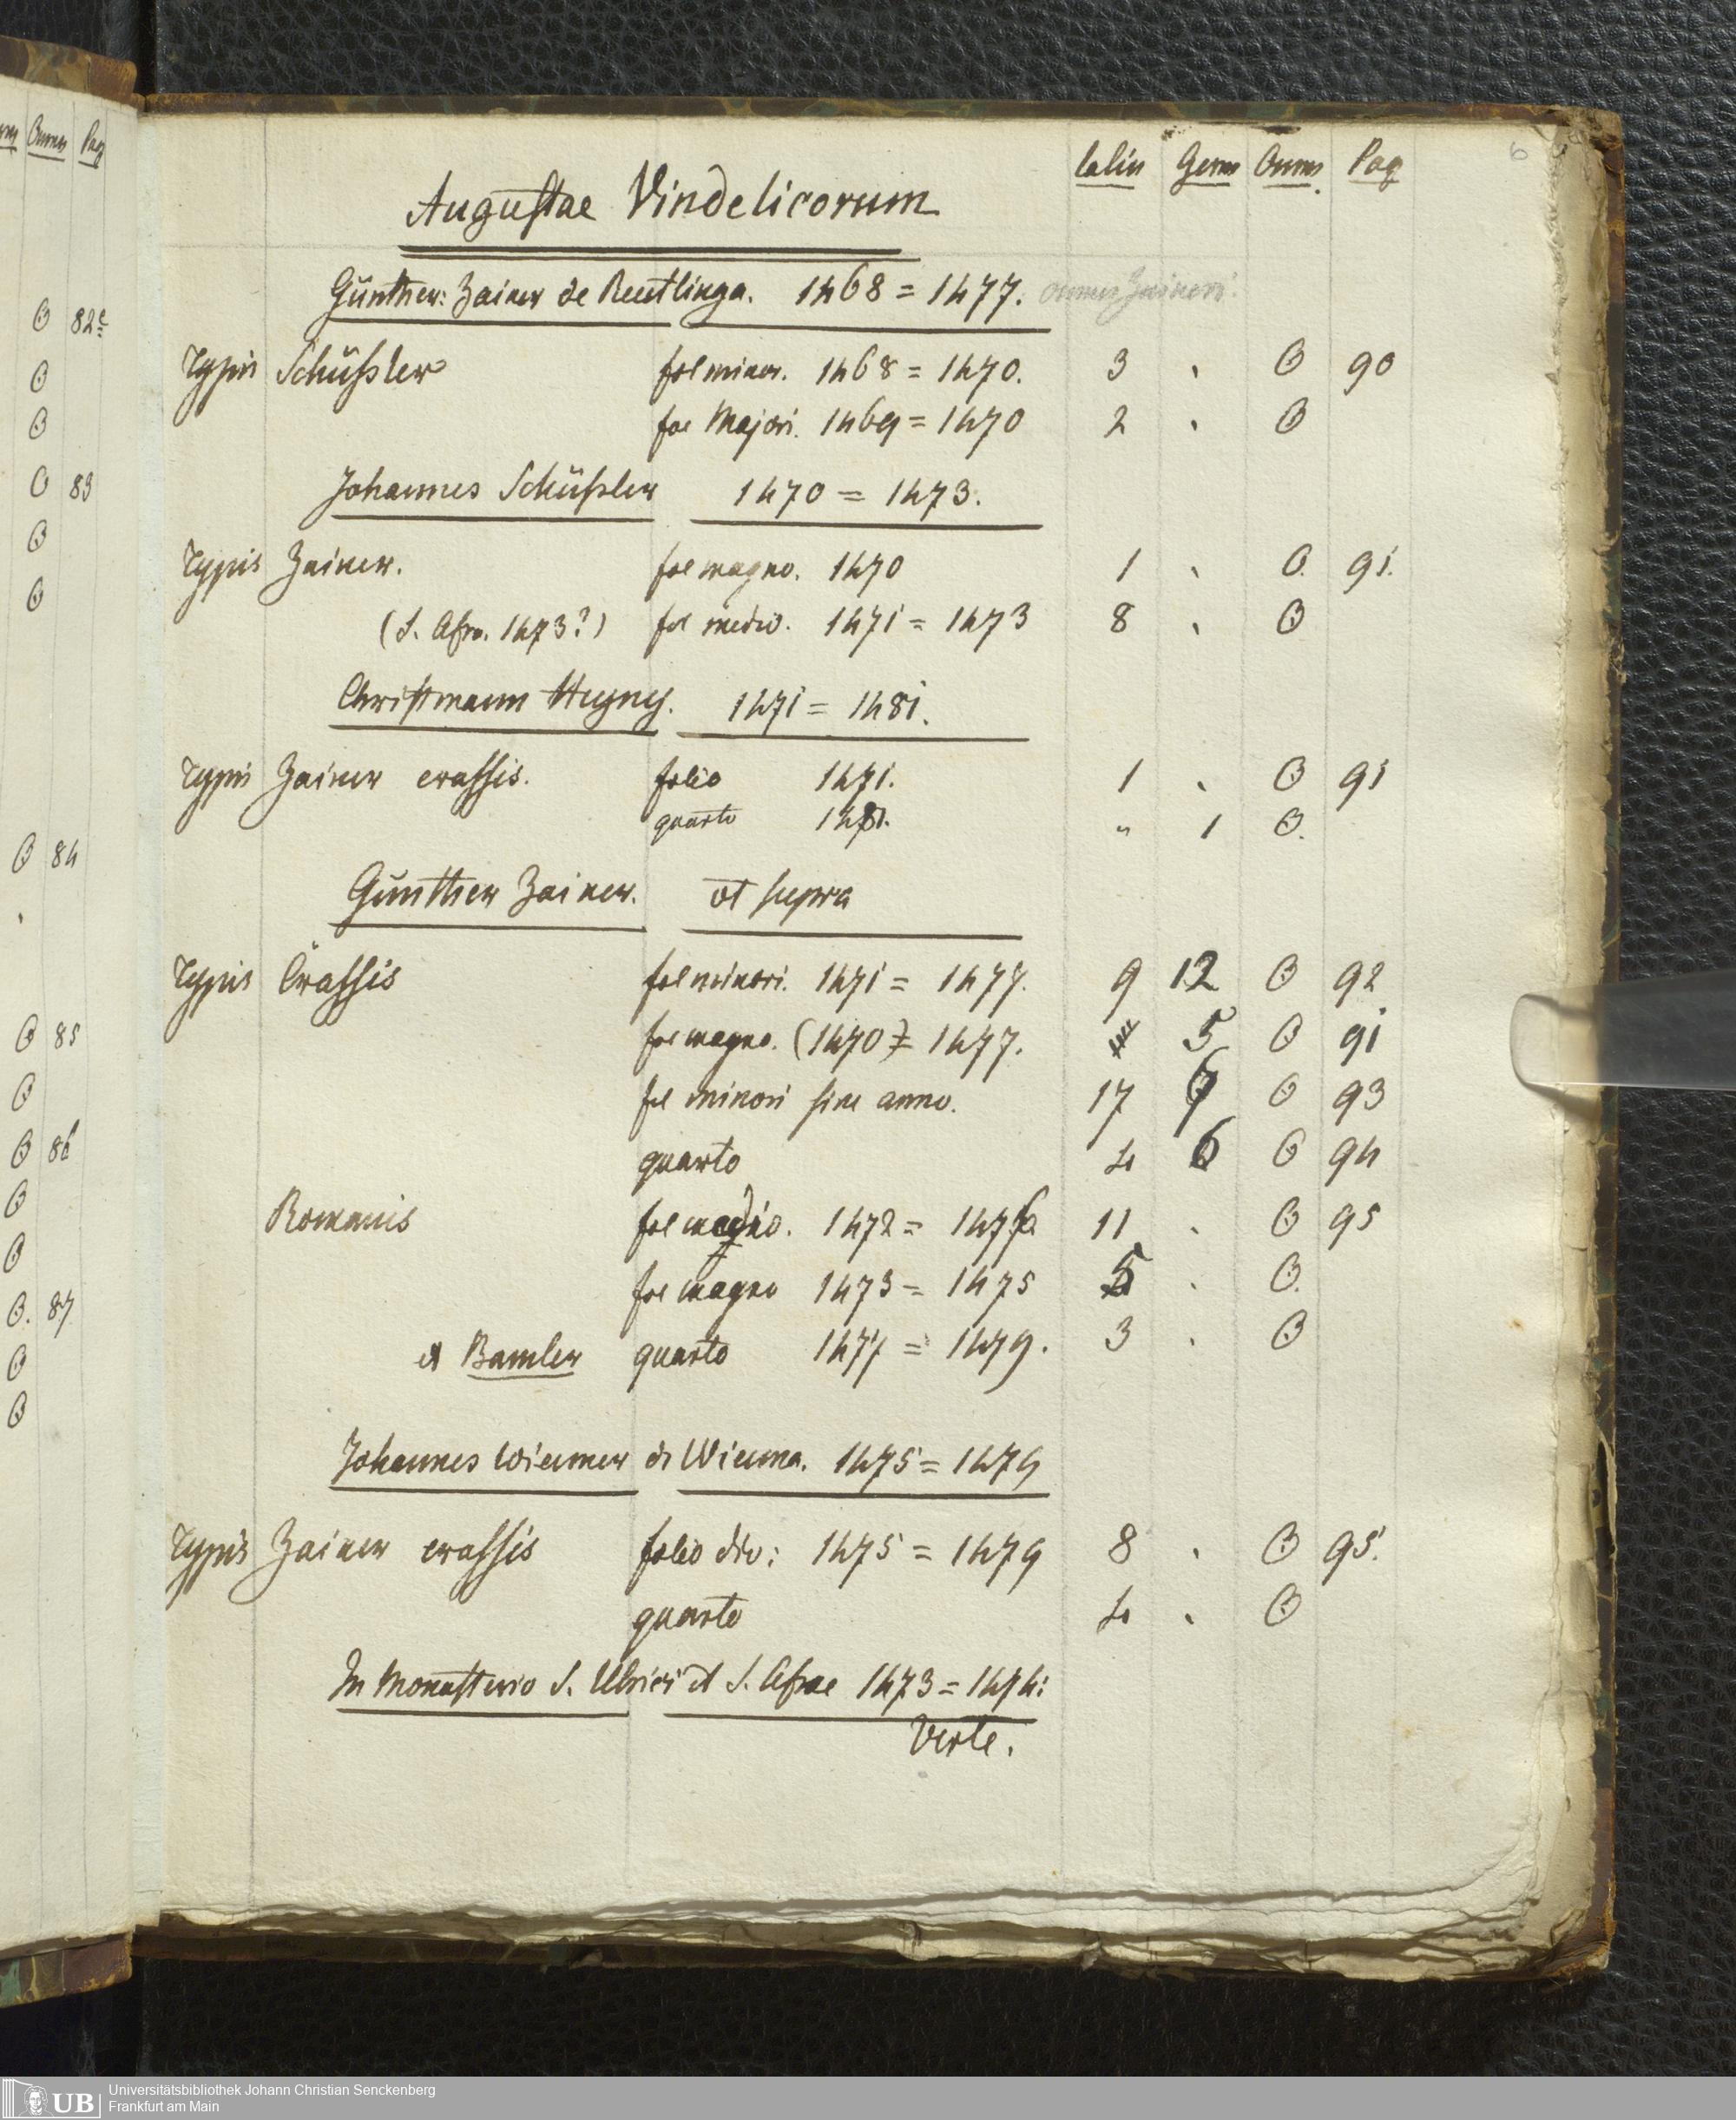 Omnes Pag
82c
83
84
85
86
87
6
Latin Germ Omnes Pag
Augustae Vindelicorum
Günther: Zainer de Reutlinga. 1468 = 1477. omnes Zaineri
Typis Schüssler fol minor. 1468 = 1470. 3 . O 90
fol Majori. 1469 = 1470 2 . O
Johannes Schüssler 1470 = 1473.
Typis Zainer. fol magno. 1470 1 . O. 91.
(S. Afra. 1473?) fol medio. 1471 = 1473 8 . O
Christmann Heyny. 1471 = 1481.
Typis Zainer crassis. folio 1471. 1 . O 91
quarto 1481. " 1 O.
Günther Zainer. ut supra
Typis Crassis fol minori. 1471 = 1477. 9 12 O 92
fol magno. (1470) = 1477. 5 O 91
fol minori sine anno. 17 O 93
quarto 4 6 O 94
Romanis fol medio. 1472 = 11 . O 95
fol magno 1473 = 1475 5 . O.
et Bamler quarto 1477 = 1479. 3 . O
Johannes Wiener de Wienna. 1475 = 1479
Typis Zainer crassis folio div: 1475 = 1479 8 . O 95.
quarto 4 . O
In Monasterio S. Ulrici et S. Afrae 1473 = 1474:
Verte.
UB Universitätsbibliothek Johann Christian Senckenberg
Frankfurt am Main